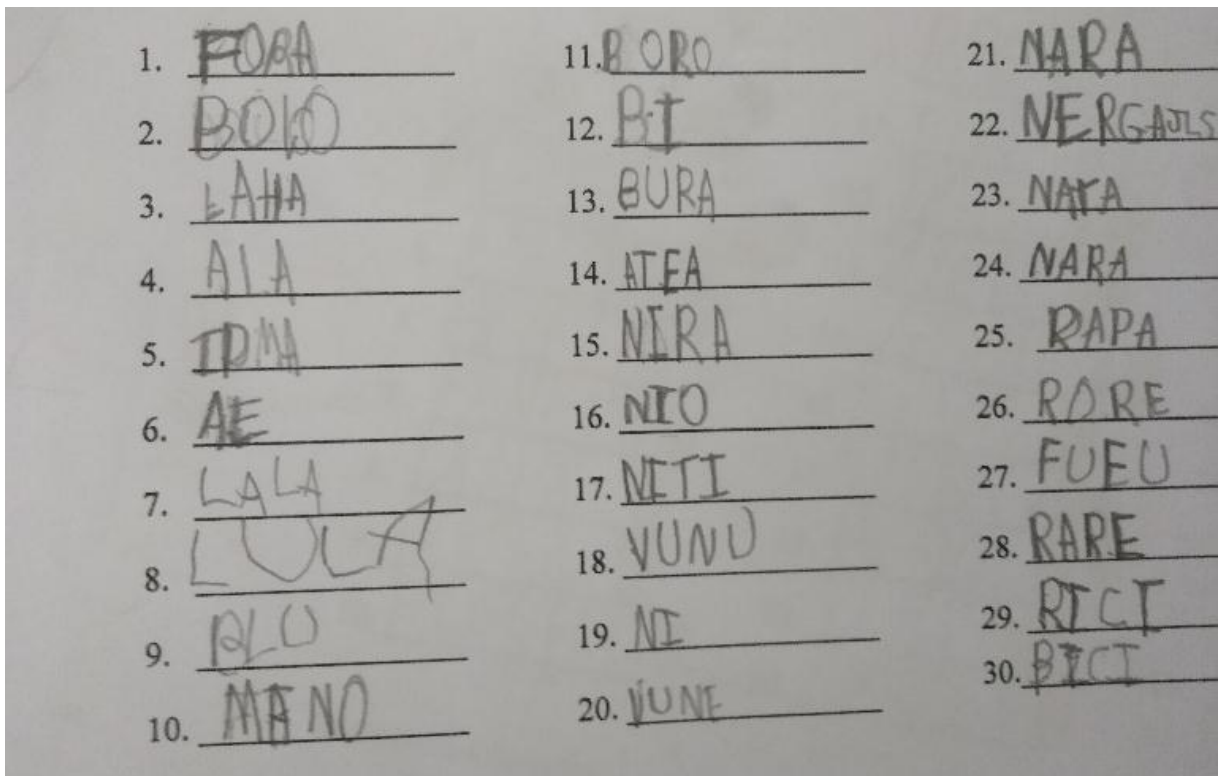 1. FORA
2. BOLO
3. LAHA
4. ALA
5. IDMA
6. AE
7. LALA
8. LULA
9. BLU
10. MANO
11. BORO
12. BI
13. BURA
14. ATEA
15. NIRA
16. NIO
17. NITI
18. VUNU
19. NI
20. VUNE
21. NARA
22. NERGAJLS
23. NATA
24. NARA
25. RAPA
26. RORE
27. FUEU
28. RARE
29. RICI
30. BICI